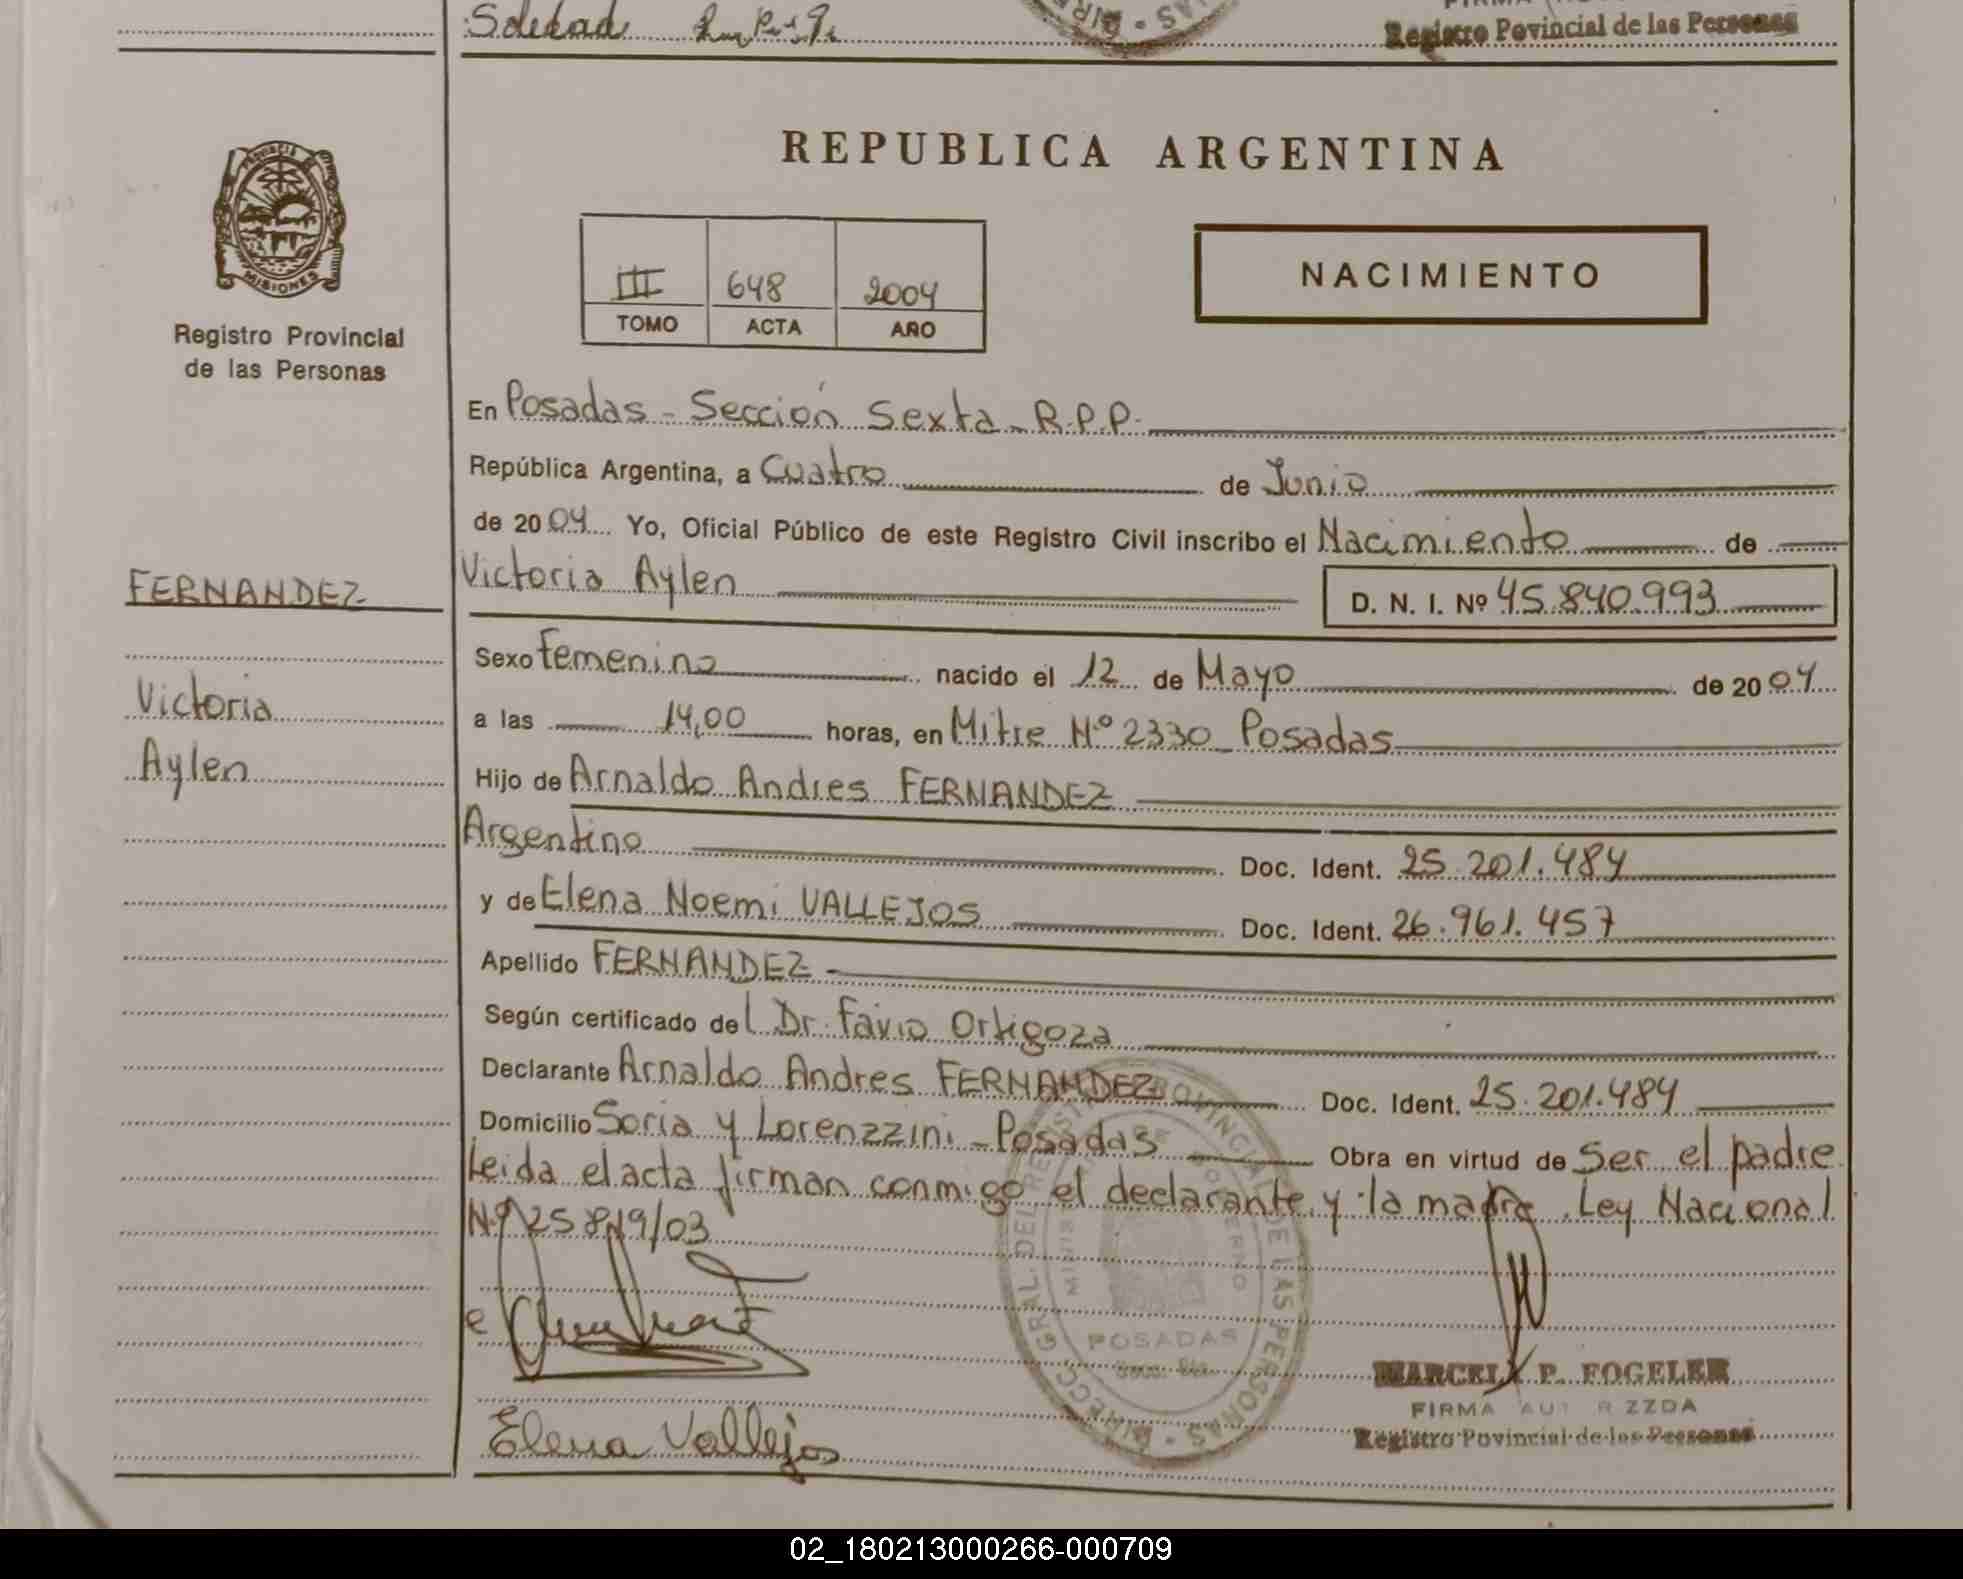 Soledad
Registro Povincial de las Personas
REPUBLICA ARGENTINA
PROVINCIA DE
MISIONES
Registro Provincial
de las Personas
III 648 2004
TOMO ACTA AÑO
NACIMIENTO
En Posadas - Sección Sexta - R.P.P.
República Argentina, a Cuatro de Junio
de 2004 Yo, Oficial Público de este Registro Civil inscribo el Nacimiento de
FERNANDEZ
Victoria
Aylen
Victoria Aylen D. N. I. Nº 45.840.993
Sexo Femenino nacido el 12 de Mayo de 2004
a las 14,00 horas, en Mitre Nº 2330 - Posadas
Hijo de Arnaldo Andres FERNANDEZ
Argentino Doc. Ident. 25.201.484
y de Elena Noemi VALLEJOS Doc. Ident. 26.961.457
Apellido FERNANDEZ
Según certificado del Dr. Favio Ortigoza
Declarante Arnaldo Andres FERNANDEZ Doc. Ident. 25.201.484
Domicilio Soria y Lorenzzini - Posadas Obra en virtud de Ser el padre
Leida el acta firman conmigo el declarante y la madre. Ley Nacional
Nº 25819/03
DIRECC GRAL. DEL REGISTRO PROVINCIAL DE LAS PERSONAS
MINISTERIO DE GOBIERNO
POSADAS
Elena Vallejos
MARCELA P. FOGELER
FIRMA AUT R ZZDA
Registro Povincial de las Personas
02_180213000266-000709